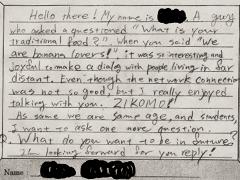 Hello there! My name is. A guy
who asked a questioned "What is your
traditional food?" When you said "We
are banana lovers!!" It was so interesting and
joyful to make a dialog with people living in far
distant. Even though the network connection
was not so good but I really enjoyed
talking with you. ZIKOMO!
As same we are same age, and students,
I want to ask one more question.
What do you want to be in future?
I'm looking forward for you reply!
Name: